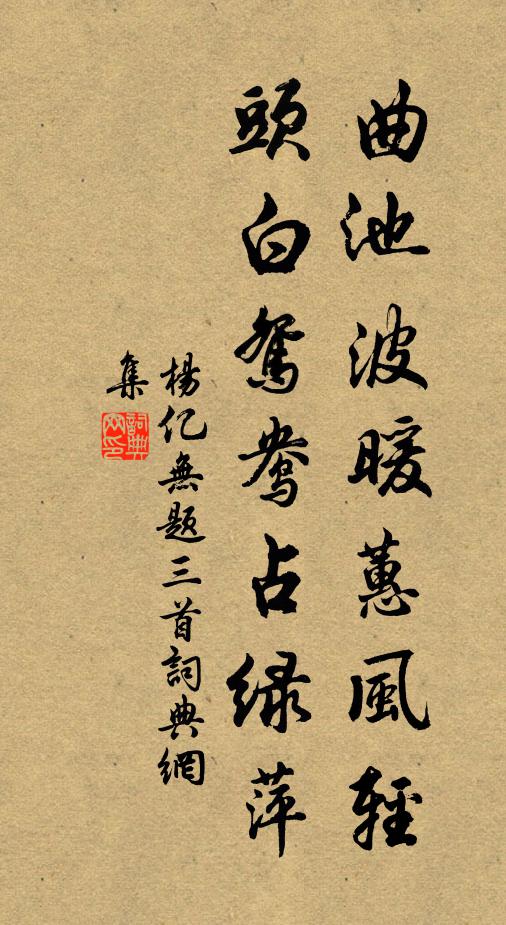 曲池波暖蕙風輕
頭白鴛鴦占绿萍
楊亿無题三首詞典網
集
詞典網印